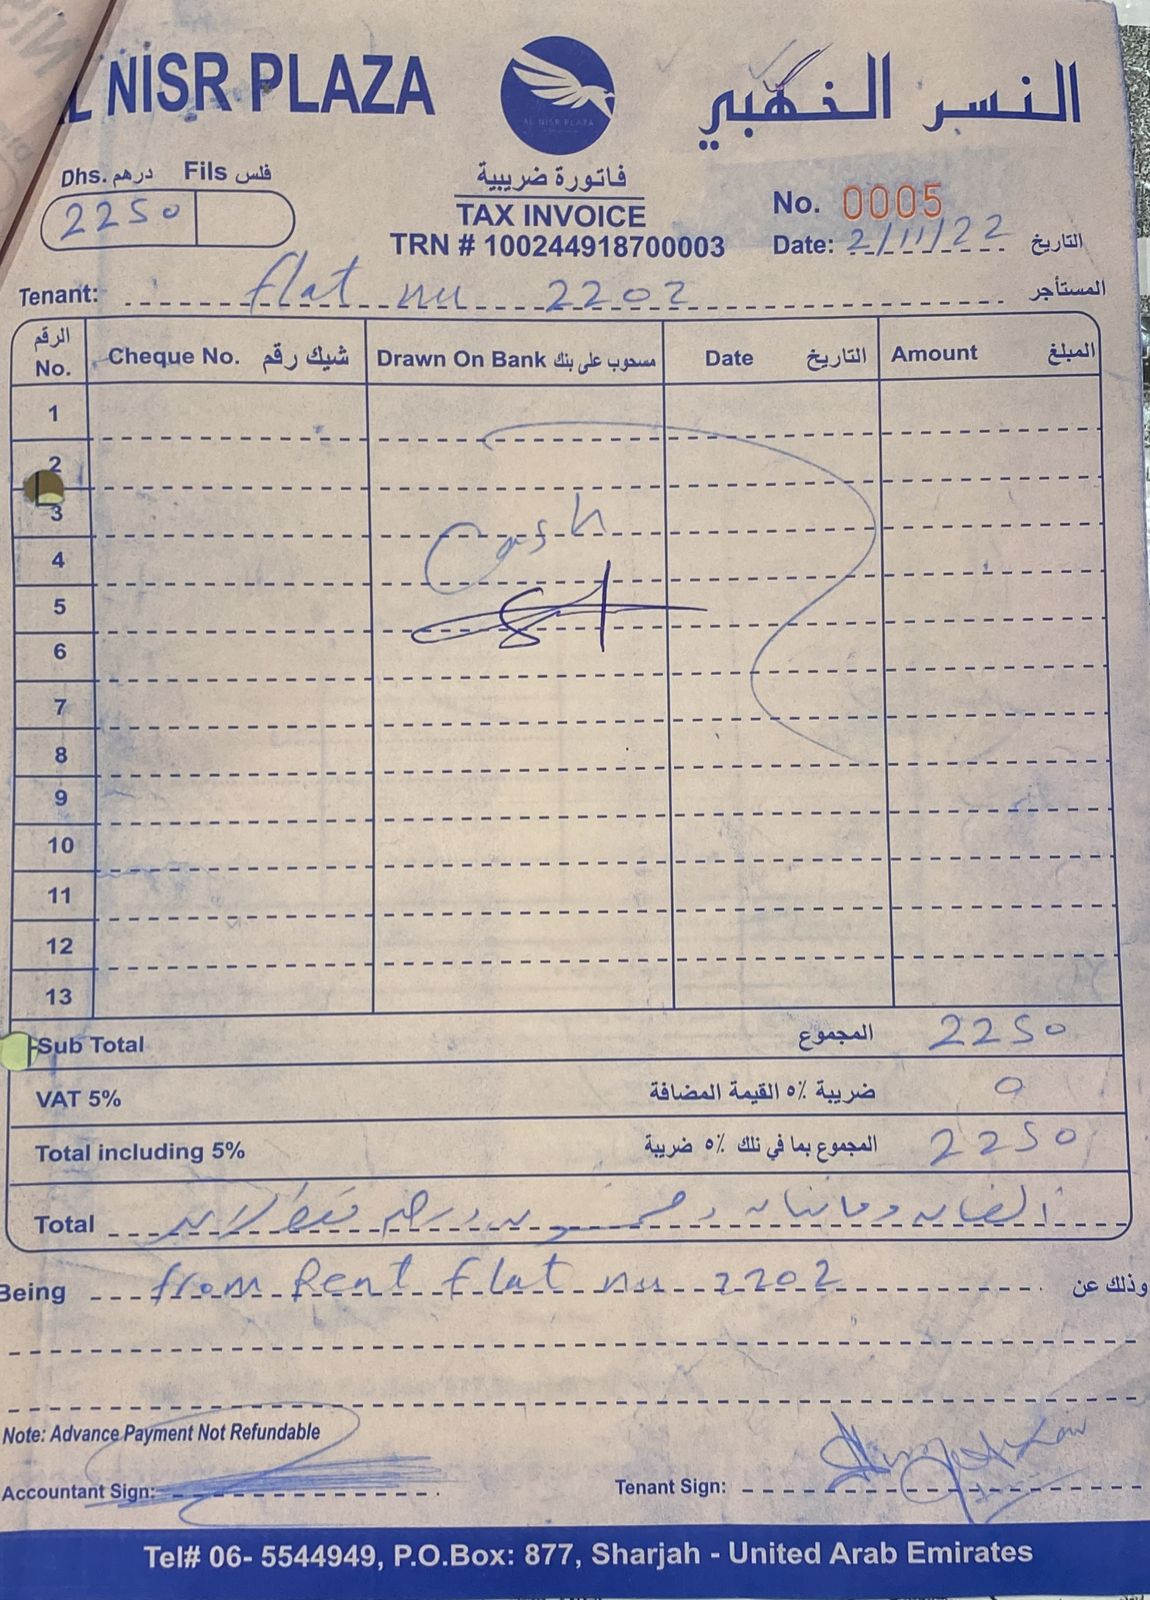 AL NISR PLAZA
النسر الذهبي
AL NISR PLAZA
Dhs. درهم Fils فلس
2250
فاتورة ضريبية
TAX INVOICE
TRN # 100244918700003
No. 0005
Date: 2/11/22 التاريخ
Tenant: flat nu 2202 المستأجر
الرقم No. Cheque No. شيك رقم Drawn On Bank مسحوب على بنك Date التاريخ Amount المبلغ
1
2
3
Cash
4
5
6
7
8
9
10
11
12
13
Sub Total المجموع 2250
VAT 5% ضريبة ٥٪ القيمة المضافة 0
Total including 5% المجموع بما في تلك ٥٪ ضريبة 2250
Total
Being from Rent flat nu 2202 وذلك عن
Note: Advance Payment Not Refundable
Accountant Sign: Tenant Sign:
Tel# 06- 5544949, P.O.Box: 877, Sharjah - United Arab Emirates